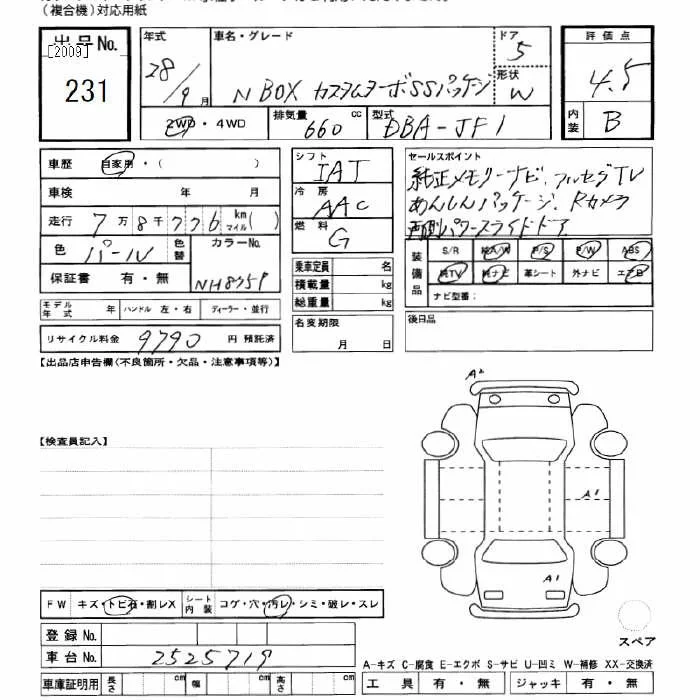 (複合機)対応用紙
出品No. [2009] 231
年式 28/9月
車名・グレード N BOX カスタムターボSSパッケージ
ドア 5
形状 W
評価点 4.5
2WD・4WD
排気量 660 cc
型式 DBA-JF1
内装 B
車歴 自家用・( )
車検 年 月
走行 7万8千776 km マイル( )
色 パール
色替
カラーNo. NH875P
保証書 有・無
シフト IAT
冷房 AAC
燃料 G
セールスポイント
純正メモリーナビ、フルセグTV
あんしんパッケージ、Rカメラ
両側パワースライドドア
装備品 S/R 純A/W P/S P/W ABS
純TV 純ナビ 革シート 外ナビ エアB
ナビ型番:
乗車定員 名
積載量 kg
総重量 kg
モデル年式 年 ハンドル 左・右 ディーラー・並行
名変期限 月 日
後日品
リサイクル料金 9790 円 預託済
【出品店申告欄(不良箇所・欠品・注意事項等)】
A2
【検査員記入】
A1
A1
FW キズ・トビ石・割レX
シート内装 コゲ・穴・汚レ・シミ・破レ・スレ
スペア
登録No.
車台No. 2525719
A-キズ C-腐食 E-エクボ S-サビ U-凹ミ W-補修 XX-交換済
車庫証明用 長さ cm 幅 cm 高さ cm
工具 有・無 ジャッキ 有・無